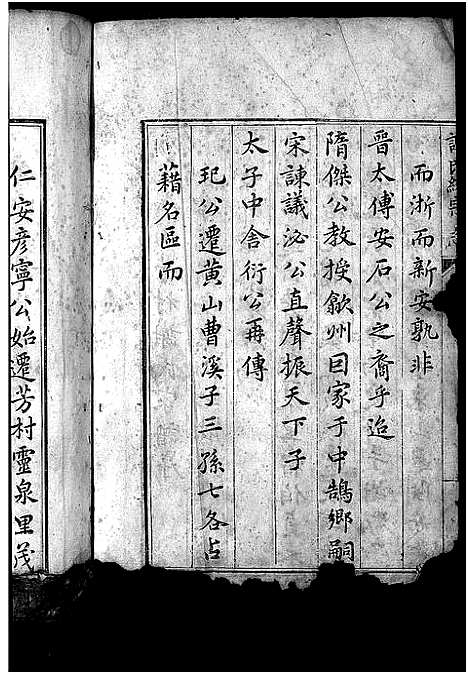 而浙而新安孰非
晉太傅安石公之裔乎迨
隋傑公教授歙州曰家于中鵠鄉嗣
宋諫議泌公直聲振天下子
太子中舍衍公再傳
玘公遷黄山曹溪子三孫七各占
藉名區而
仁安彦寧公始遷芳村靈泉里茂